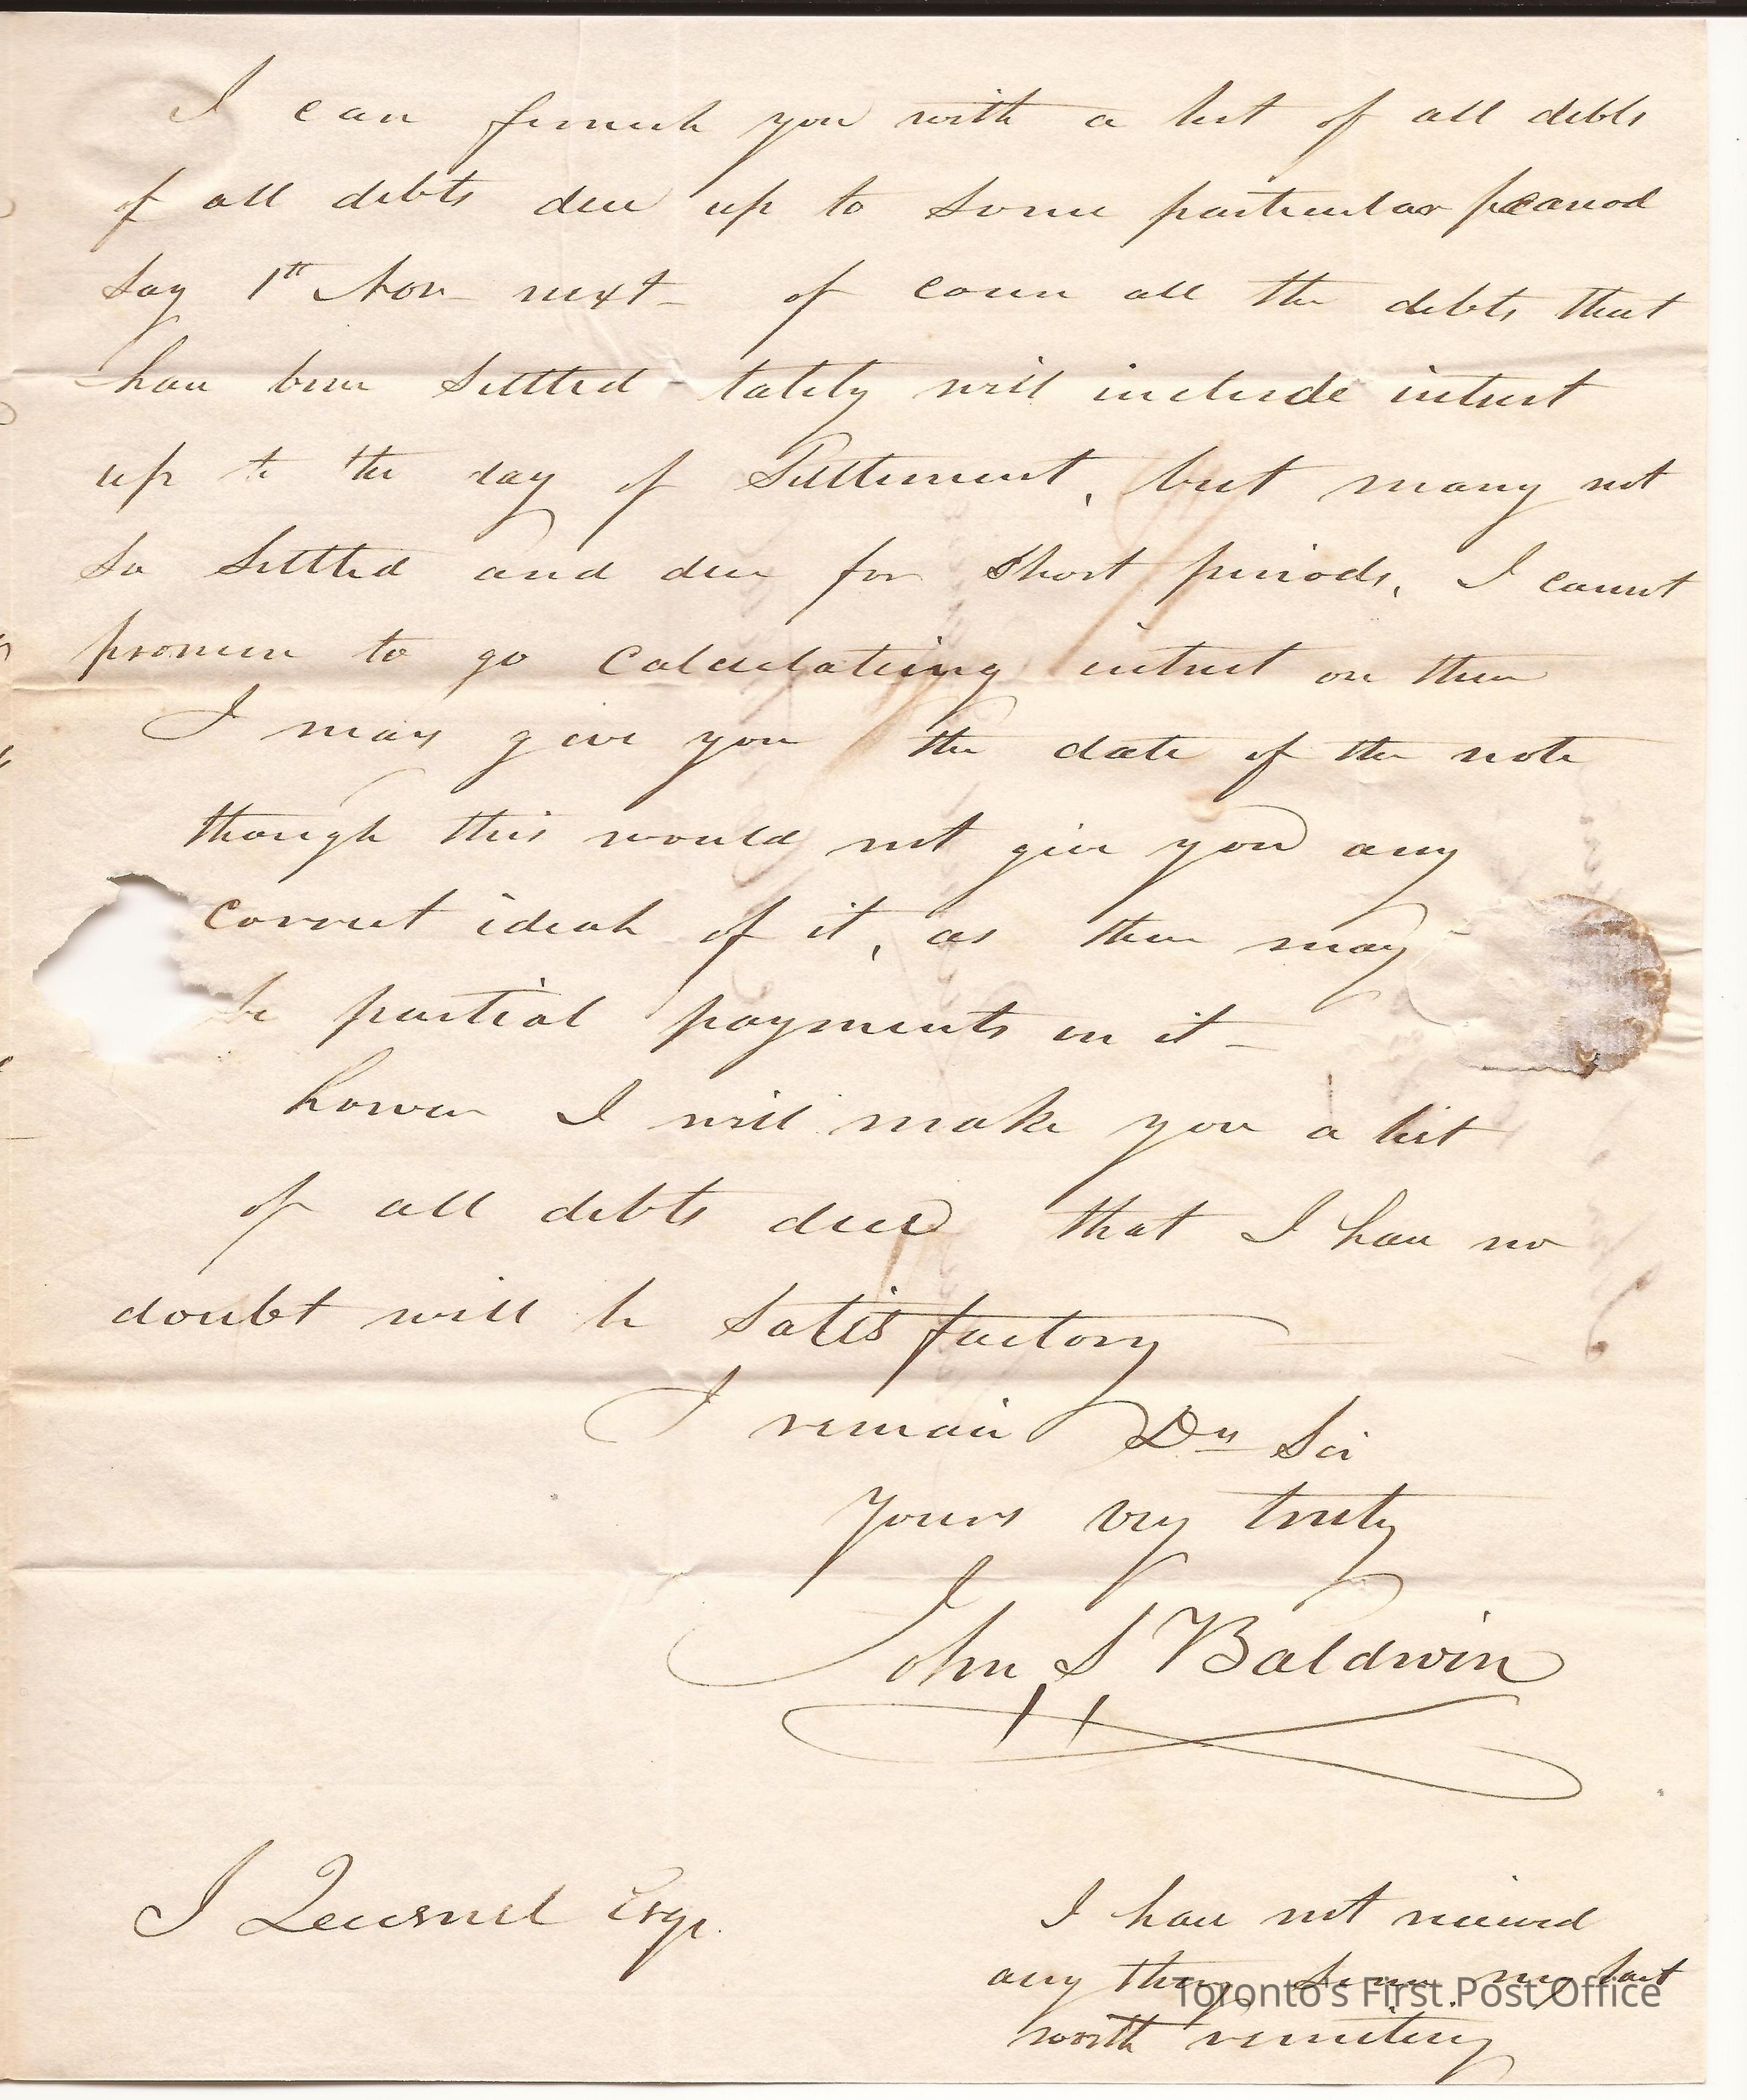 I can furnish you with a list of all debts
of all debts due up to some particular pearod
say 1st Nov next - of course all the debts that
have been settled - lately will include interest
up to the day of Settlement, but many not
so settled and due for short periods, I cannot
promise to go calculating interest on them
I may give you the date of the note
though this would not give you any
correct ideah of it, as there may
be partial payments on it -
however I will make you a list
of all debts due that I have no
doubt will be satisfactory
I remain Dr Sir
yours very truly
John S Baldwin
J Quesnel Esqr.
I have not received
any thing since my last
worth remitting
Toronto's First Post Office